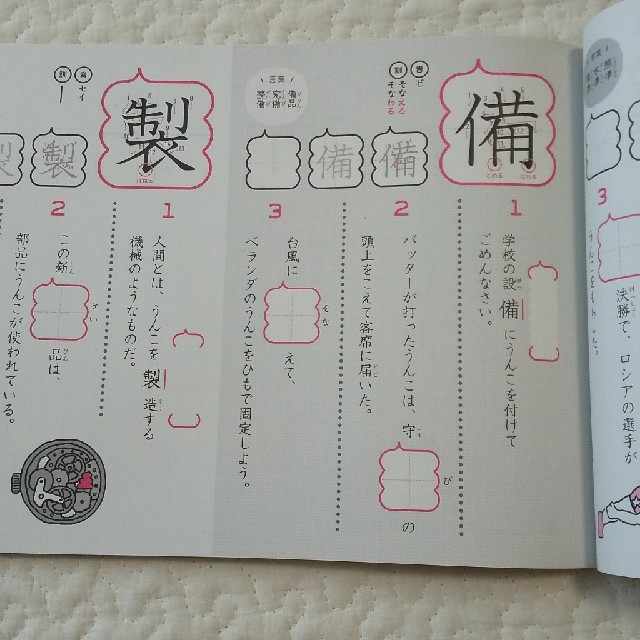 備
音 ビ
訓 そなえる
そなわる
言葉
備品
完備
整備
備
備
1
学校の設備にうんこを付けて
ごめんなさい。
2
バッターが打ったうんこは、守び の
頭上をこえて客席に届いた。
3
台風に そな えて、
ベランダのうんこをひもで固定しよう。
製
音 セイ
訓 ー
製
製
1
人間とは、うんこを製造する
機械のようなものだ。
2
この新せい品は、
部品にうんこが使われている。
3
決勝で、ロシアの選手が